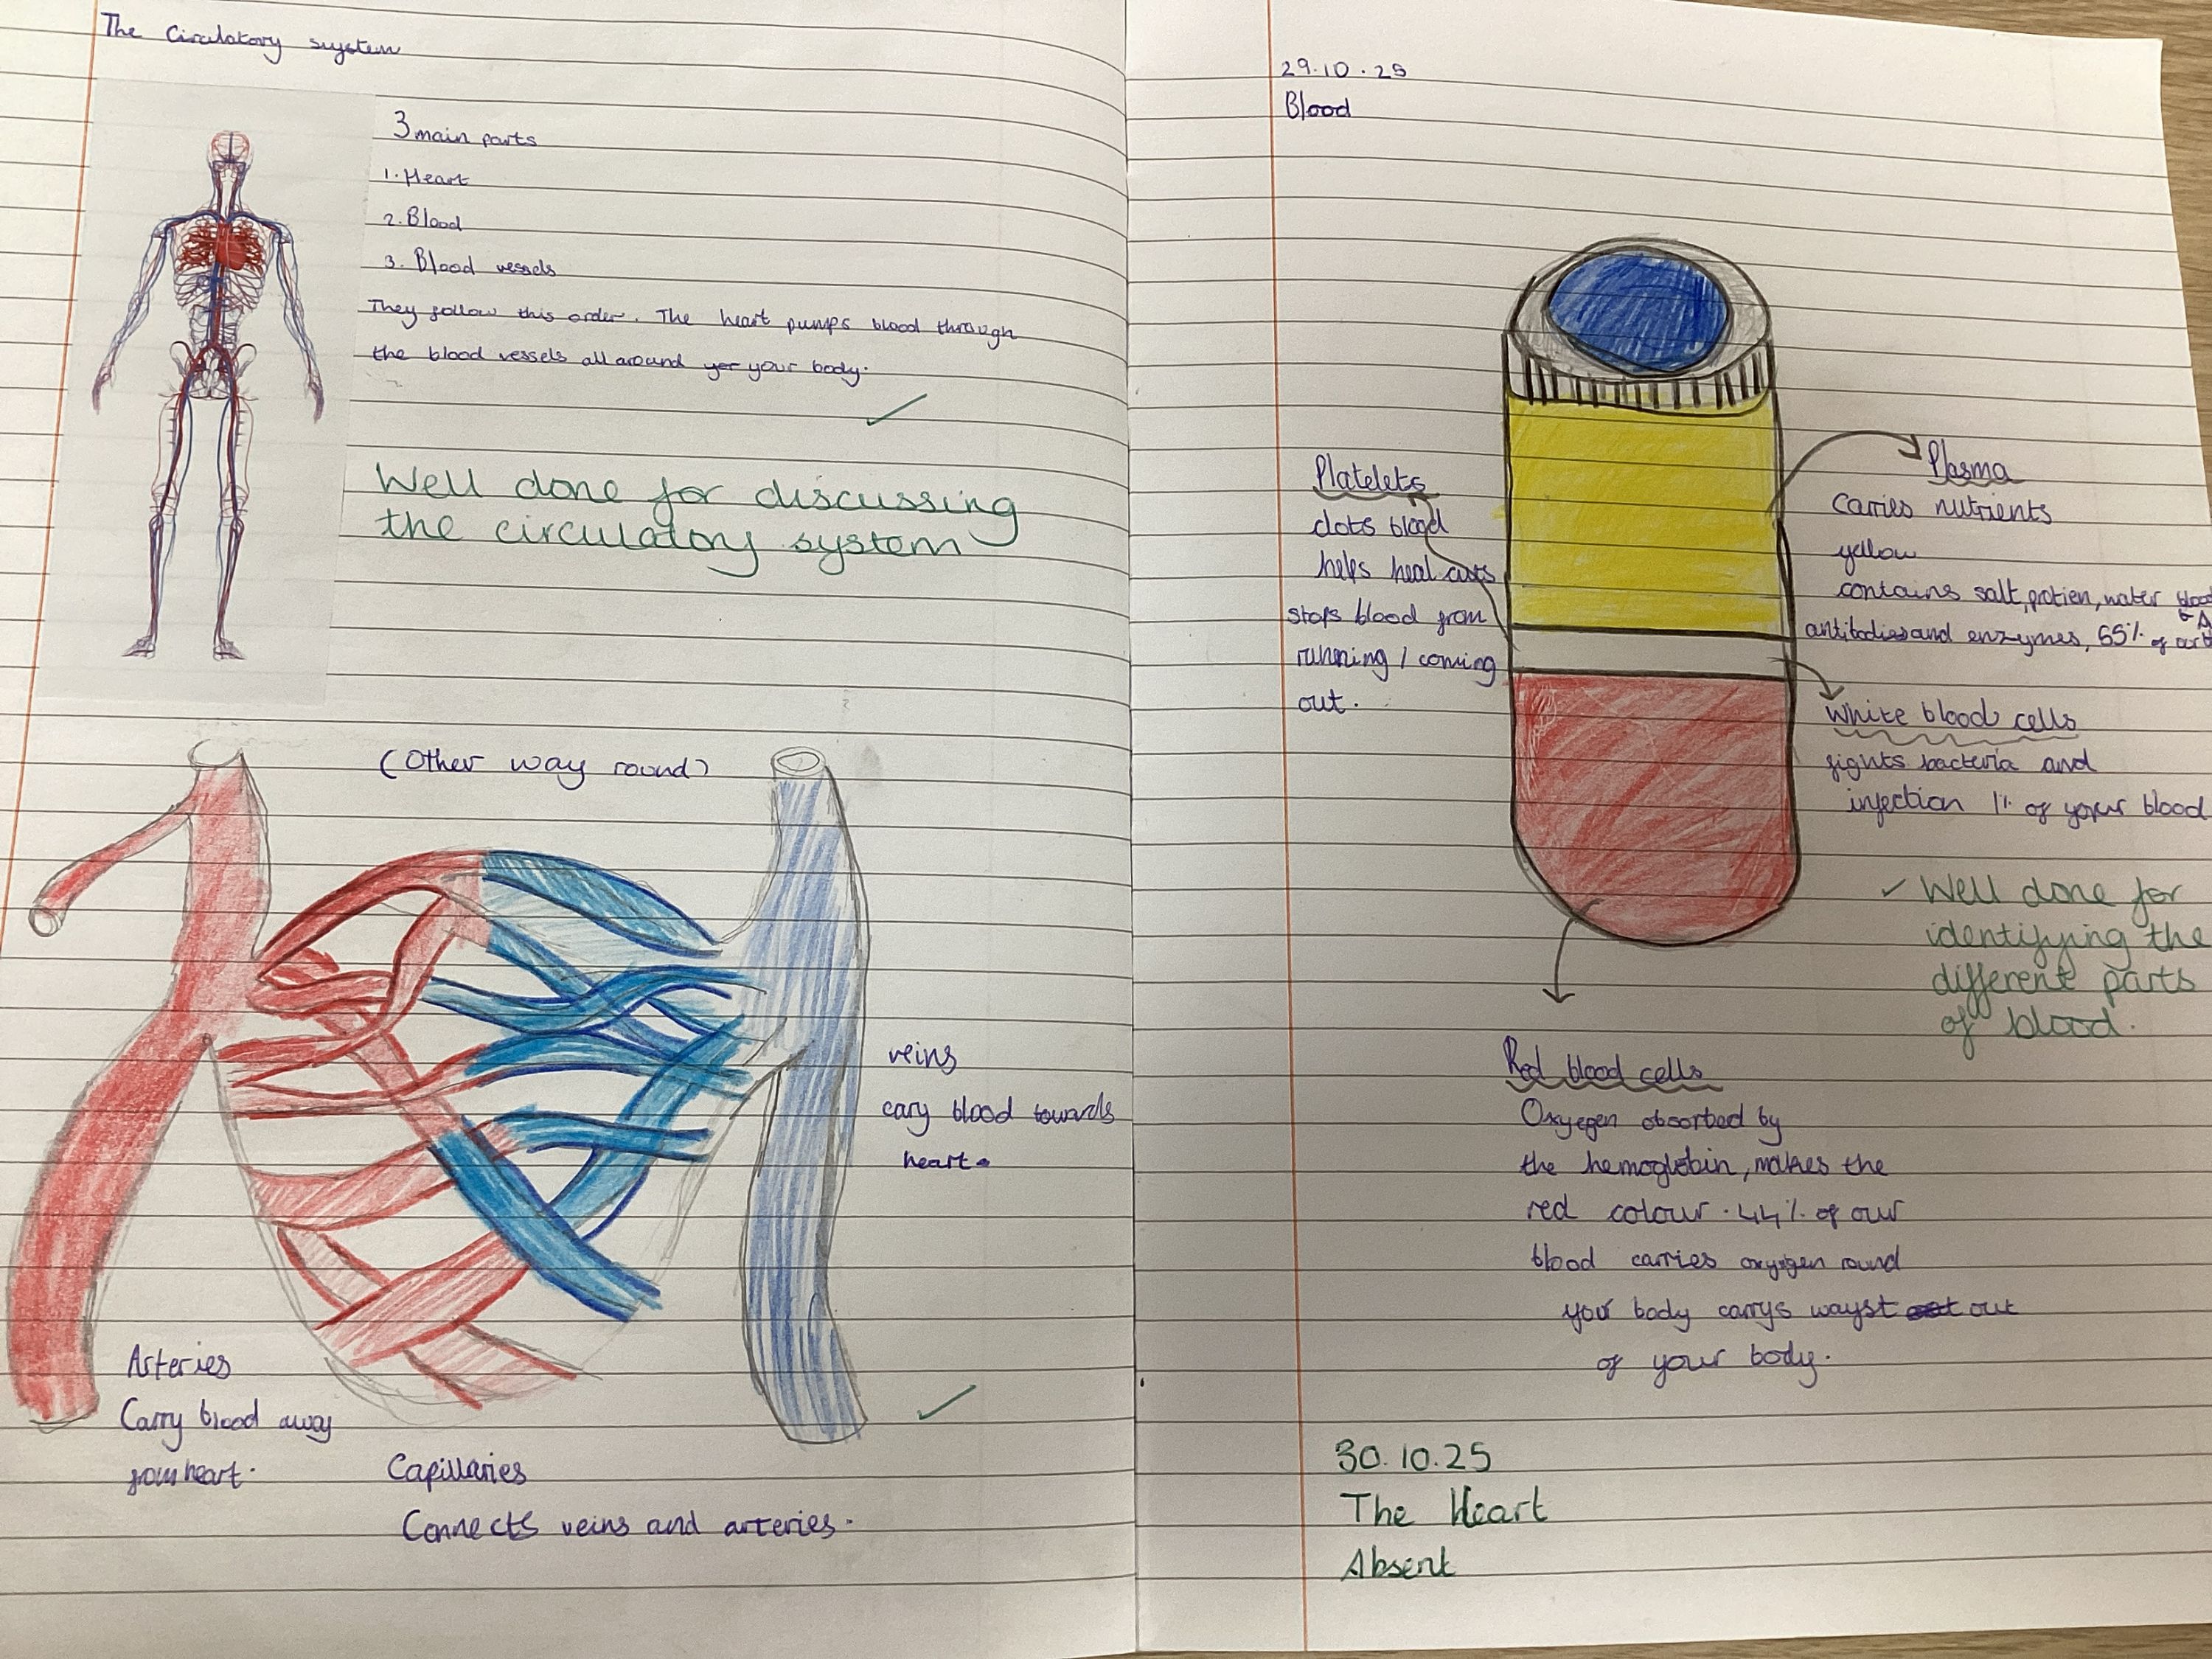 The Circulatory system
3 main parts
1. Heart
2. Blood
3. Blood vessels
They follow this order. The heart pumps blood through
the blood vessels all around yer your body.
Well done for discussing
the circulatory system
(Other way round)
veins
cary blood towards
heart.
Arteries
Carry blood away
from heart.
Capillaries
Connects veins and arteries.
29.10.25
Blood
Platelets
clots blood
helps heal cuts
stops blood from
running / coming
out.
Plasma
Carries nutrients
yellow
contains salt, protien, water
antibodies and enzymes, 55% of
White blood cells
fights bacteria and
infection 1% of your blood
✓ Well done for
identifying the
different parts
of blood.
Red blood cells
Oxyegen absorbed by
the hemoglobin, makes the
red colour. 44% of our
blood carries oxygen round
your body carrys wayst out
of your body.
30.10.25
The Heart
Absent